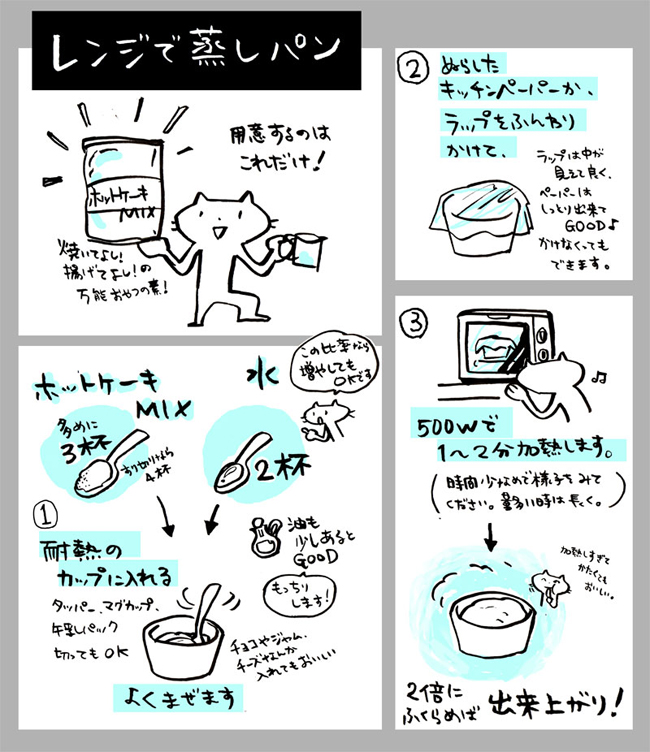 レンジで蒸しパン
用意するのは
これだけ!
ホットケーキ
MIX
焼いてよし!
揚げてよし!の
万能おやつの素!
ホットケーキ
MIX
水
この比率なら
増やしても
OKです
多めに
3杯
すり切りなら
4杯
2杯
①
耐熱の
カップに入れる
タッパー、マグカップ、
牛乳パック
切ってもOK
油も
少しあると
GOOD
もっちり
します!
チョコやジャム、
チーズなんか
入れてもおいしい
よくまぜます
②
ぬらした
キッチンペーパーか、
ラップをふんわり
かけて、
ラップは中が
見えて良く、
ペーパーは
しっとり出来て
GOOD♪
かけなくっても
できます。
③
500Wで
1〜2分加熱します。
(時間少なめで様子をみて
ください。量多い時は長く。)
加熱しすぎて
かたくても
おいしい。
2倍に
ふくらめば
出来上がり!